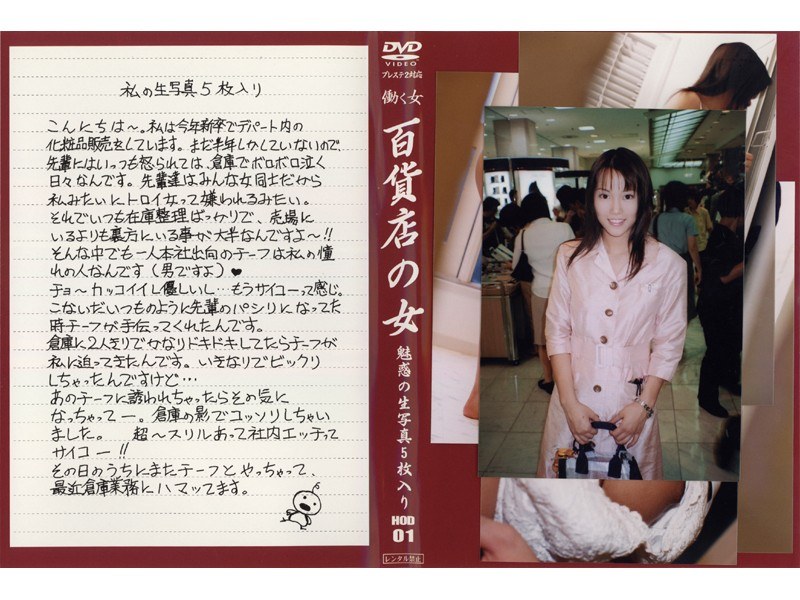 私の生写真5枚入り
こんにちは〜。私は今年新卒でデパート内の
化粧品販売をしています。まだ半年しかしていないので
先輩にはいっつも怒られては、倉庫でボロボロ泣く
日々なんです。先輩達はみんな女同士だから
私みたいにトロイ女って嫌われるみたい。
それでいつも在庫整理ばっかりで、売場に
いるよりも裏方にいる事が大半なんですよ〜!!
そんな中でも一人本社出向のチーフは私の憧
れの人なんです(男ですよ)♥
チョ〜カッコイイし優しいし…もうサイコーって感じ。
こないだいつものように先輩のパシリになってた
時チーフが手伝ってくれたんです。
倉庫に2人きりでかなりドキドキしてたらチーフが
私に迫ってきたんです。いきなりでビックリ
しちゃったんですけど…
あのチーフに誘われちゃったらその気に
なっちゃってー。倉庫の影でコッソリしちゃい
ました。 超〜スリルあって社内エッチって
サイコー!!
その日のうちにまたチーフとやっちゃって、
最近倉庫業務にハマッてます。
DVD
VIDEO
プレステ2対応
働く女
百貨店の女
魅惑の生写真5枚入り
HOD
01
レンタル禁止